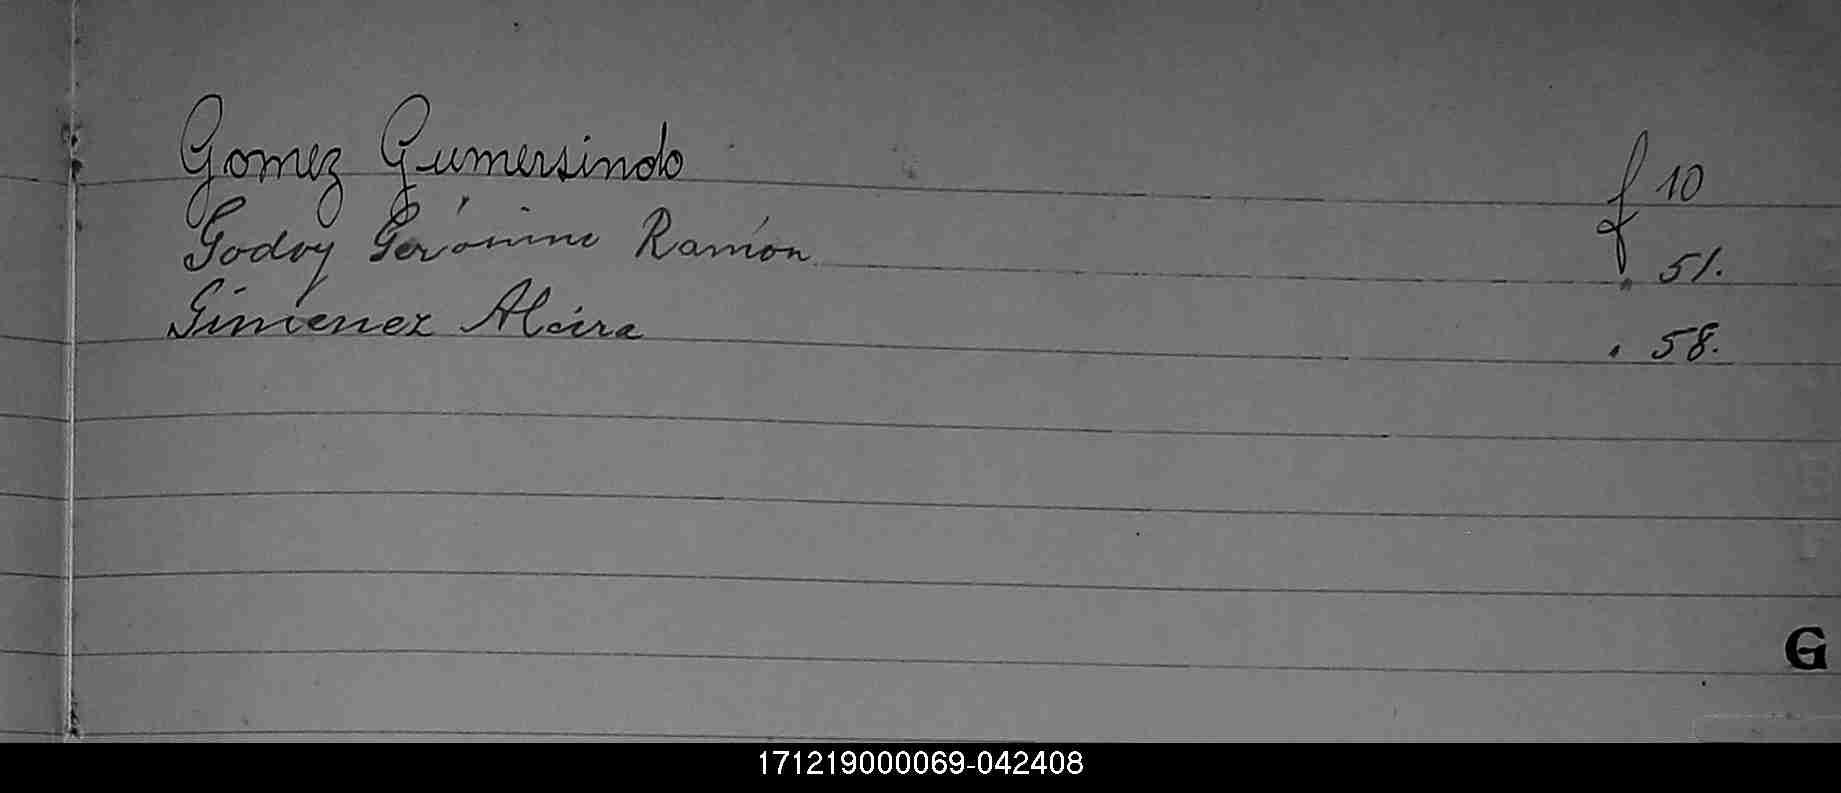 Gomez Gumersindo f 10
Godoy Gerónimo Ramón . 51.
Gimenez Alcira . 58.
G
171219000069-042408